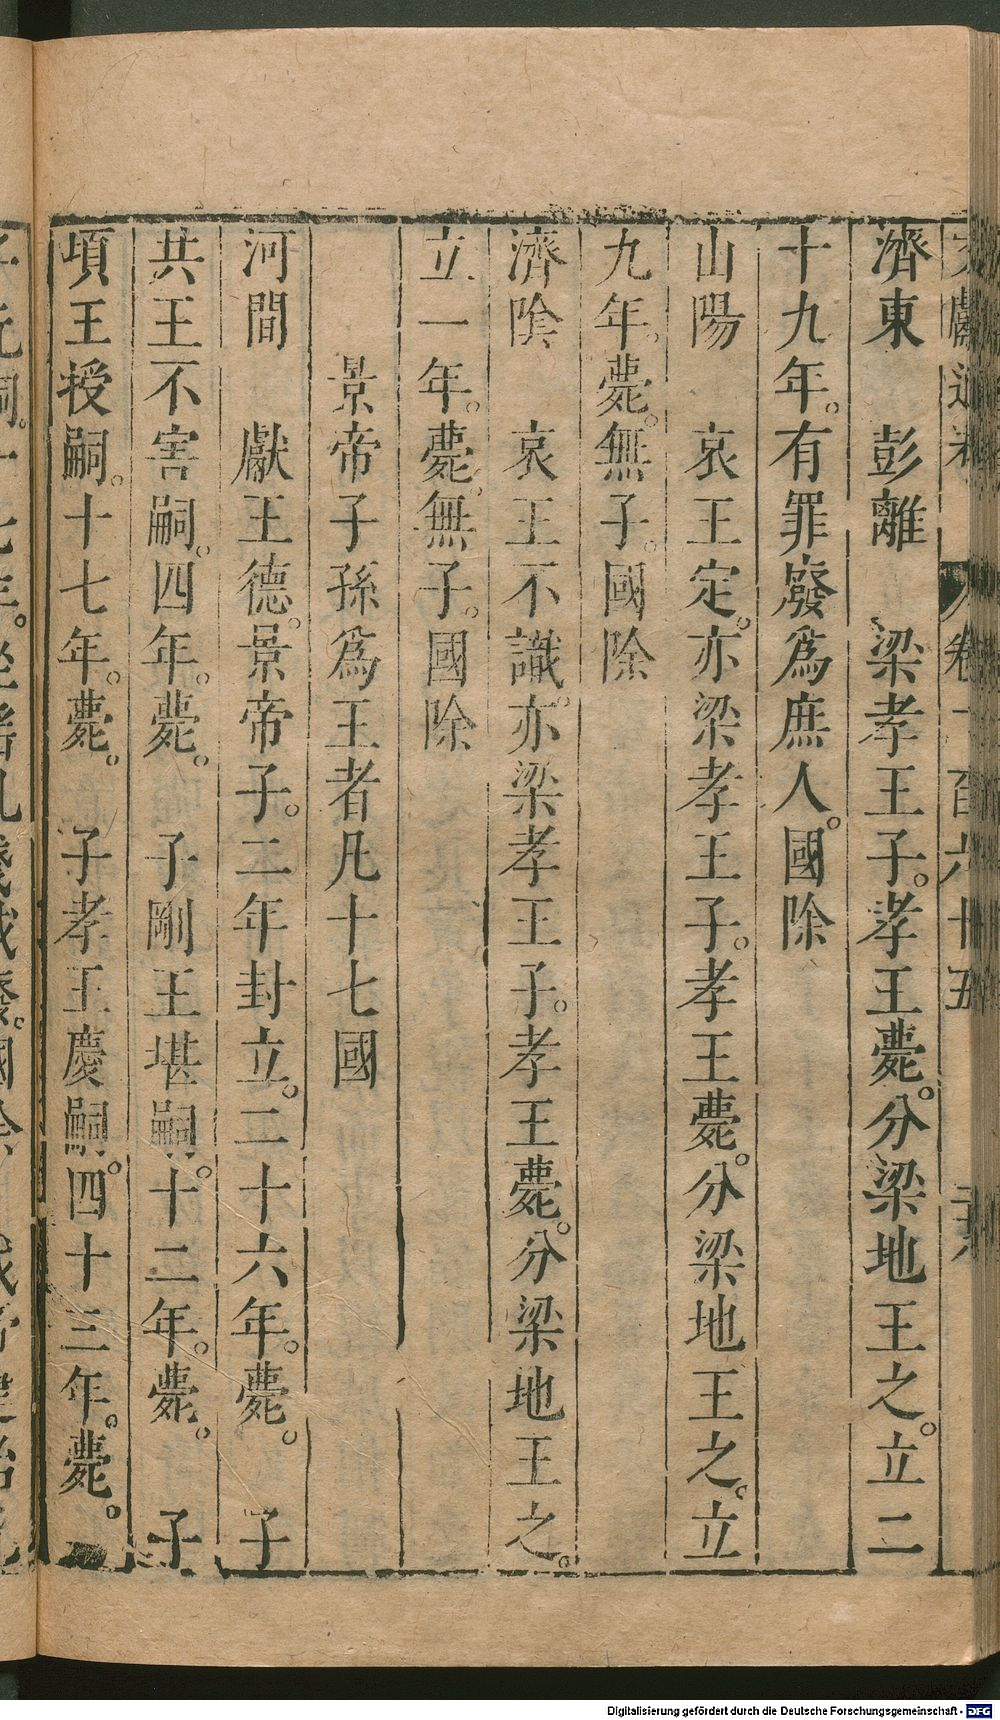 濟東　彭離　梁孝王子。孝王薨。分梁地王之。立二
十九年。有罪廢爲庶人。國除
山陽　哀王定。亦梁孝王子。孝王薨。分梁地王之。立
九年。薨。無子。國除
濟陰　哀王不識。亦梁孝王子。孝王薨。分梁地王之。
立一年。薨。無子。國除
景帝子孫爲王者凡十七國
河間　獻王德。景帝子。二年封立。二十六年。薨。　子
共王不害嗣。四年。薨。　子剛王堪嗣。十二年。薨。　子
頃王授嗣。十七年。薨。　子孝王慶嗣。四十三年。薨。
Digitalisierung gefördert durch die Deutsche Forschungsgemeinschaft - DFG